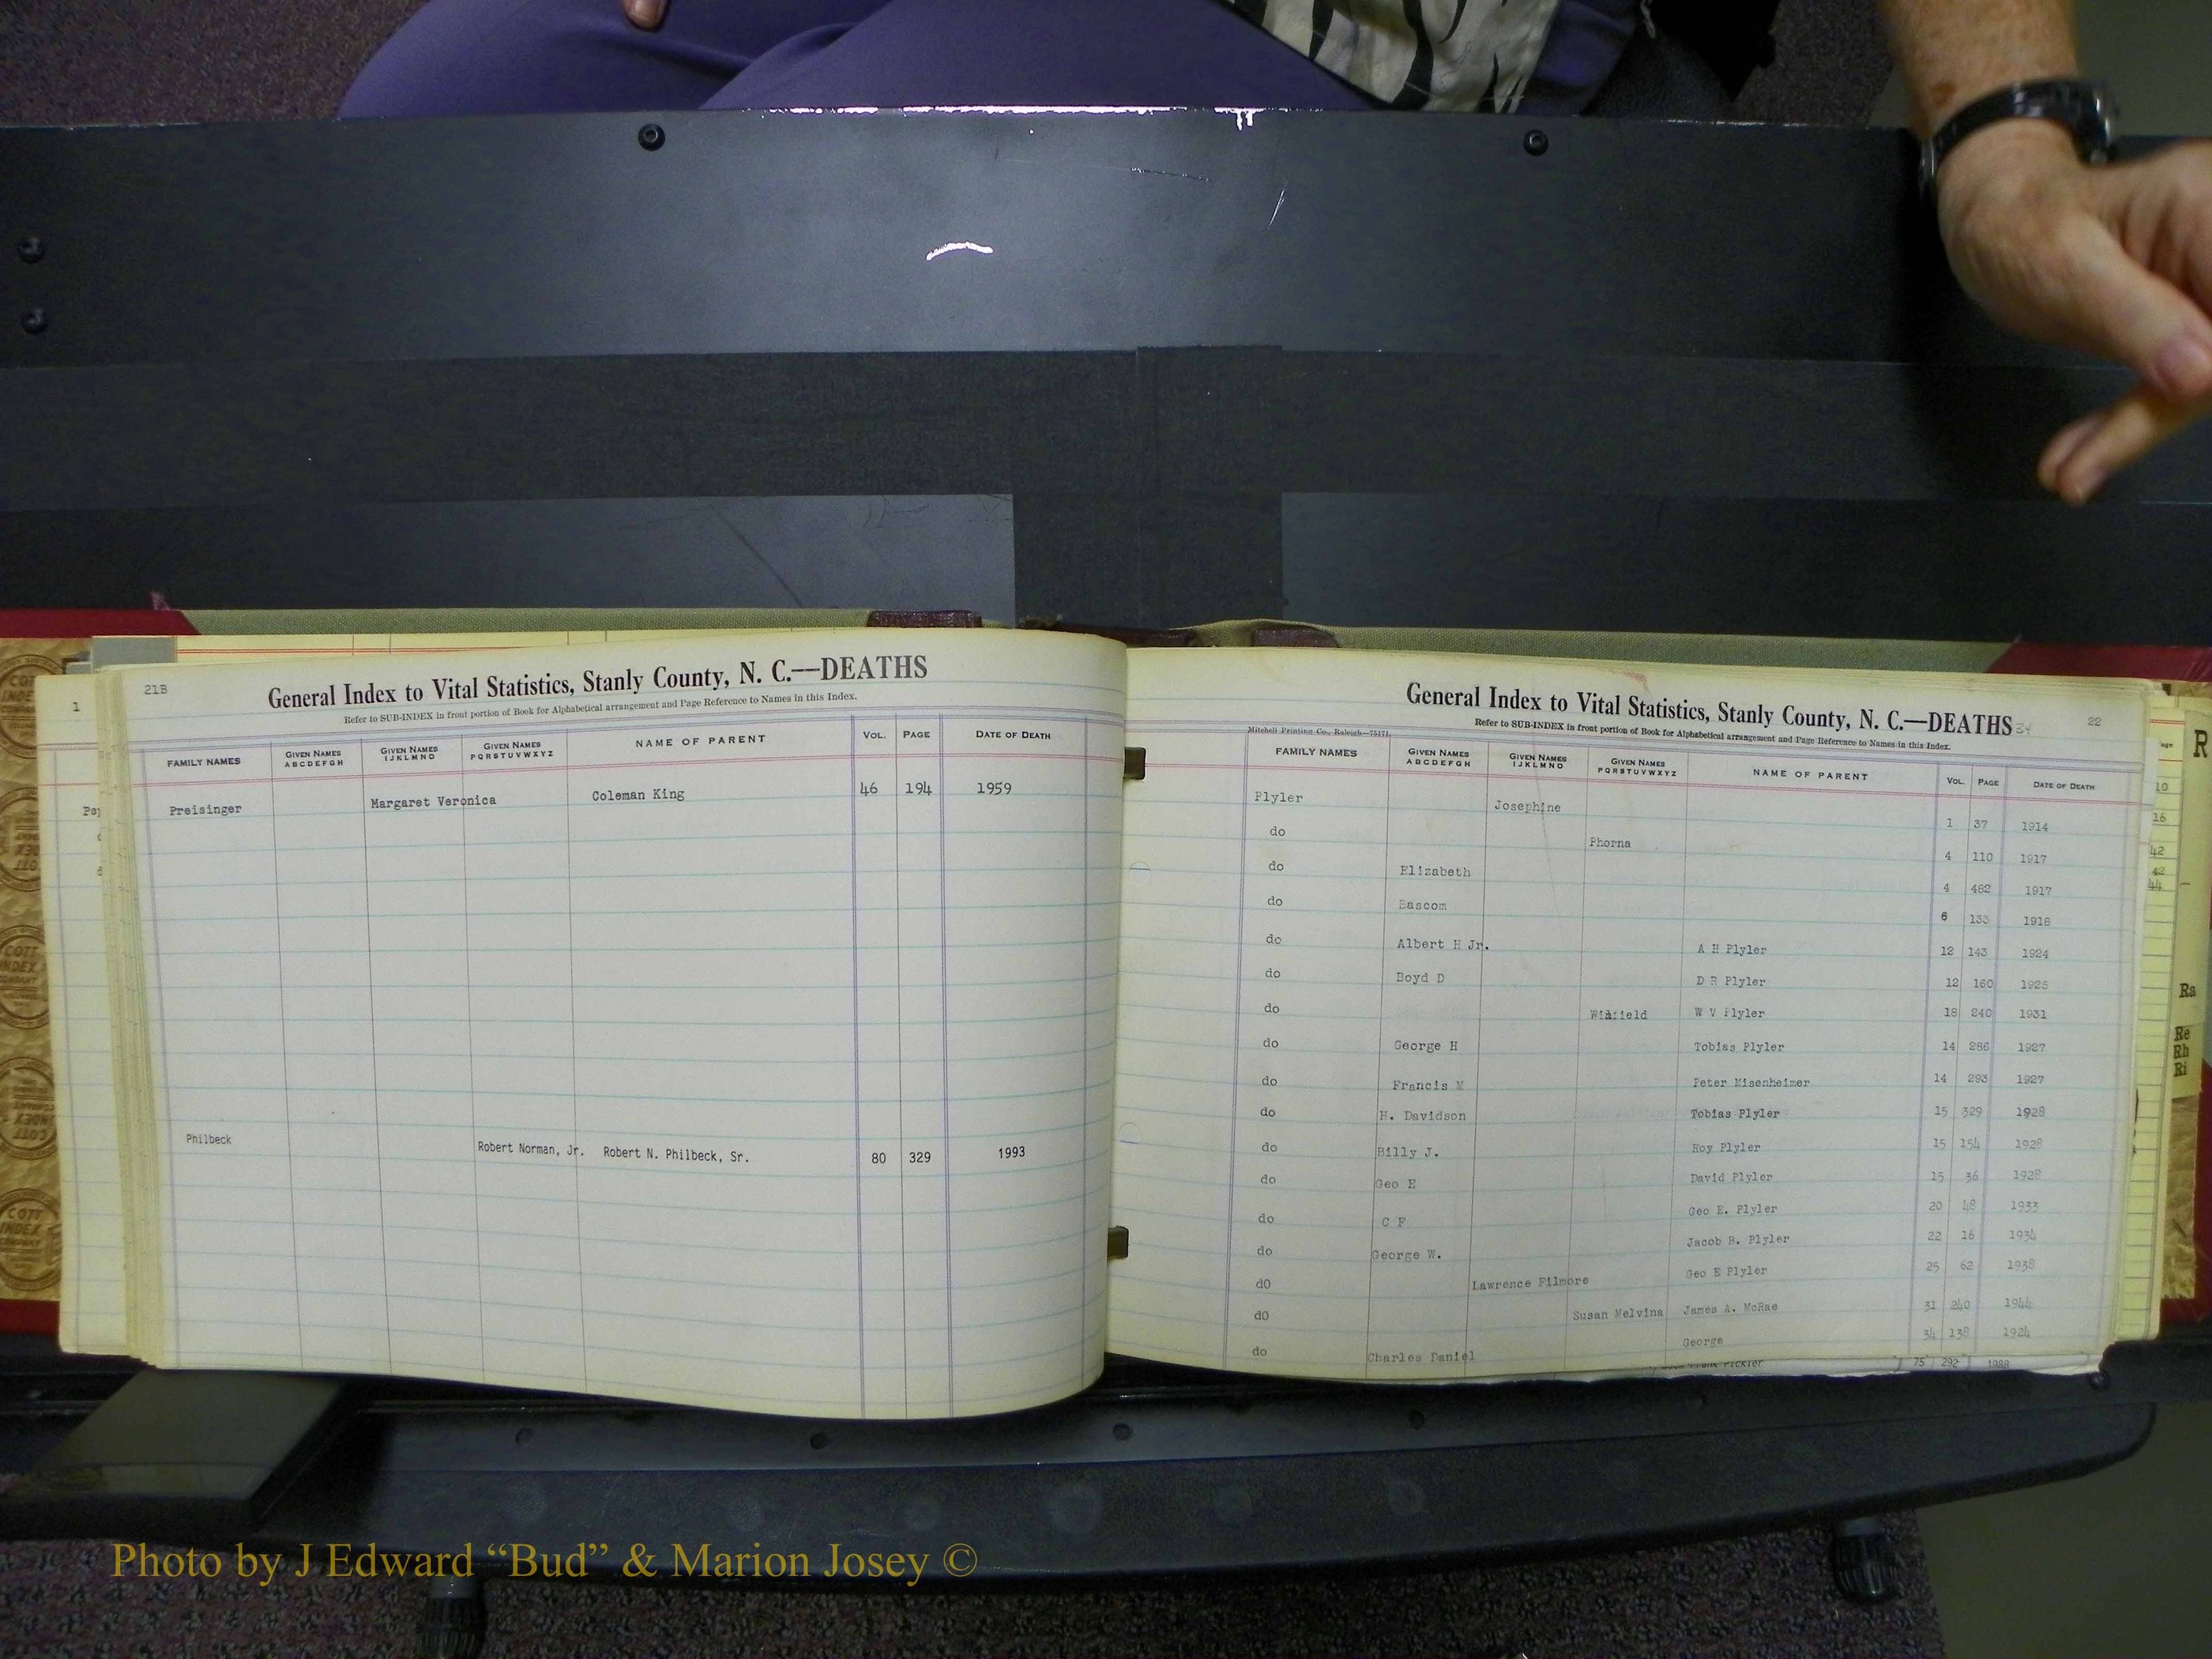 21B
General Index to Vital Statistics, Stanly County, N. C.—DEATHS
Refer to SUB-INDEX in front portion of Book for Alphabetical arrangement and Page Reference to Names in this Index.
FAMILY NAMES GIVEN NAMES ABCDEFGH GIVEN NAMES IJKLMNO GIVEN NAMES PQRSTUVWXYZ NAME OF PARENT VOL. PAGE DATE OF DEATH
Preisinger Margaret Veronica Coleman King 46 194 1959
Philbeck Robert Norman, Jr. Robert N. Philbeck, Sr. 80 329 1993
22
General Index to Vital Statistics, Stanly County, N. C.—DEATHS
Refer to SUB-INDEX in front portion of Book for Alphabetical arrangement and Page Reference to Names in this Index.
Mitchell Printing Co., Raleigh—75171
FAMILY NAMES GIVEN NAMES ABCDEFGH GIVEN NAMES IJKLMNO GIVEN NAMES PQRSTUVWXYZ NAME OF PARENT VOL. PAGE DATE OF DEATH
Plyler Josephine 1 37 1914
do Phorna 4 110 1917
do Elizabeth 4 482 1917
do Bascom 6 133 1918
do Albert H Jr. A H Plyler 12 143 1924
do Boyd D D R Plyler 12 160 1925
do Winfield W V Plyler 18 240 1931
do George H Tobias Plyler 14 286 1927
do Francis M Peter Misenheimer 14 293 1927
do H. Davidson Tobias Plyler 15 329 1928
do Billy J. Roy Plyler 15 154 1928
do Geo E David Plyler 15 36 1928
do C F Geo E. Plyler 20 48 1933
do George W. Jacob B. Plyler 22 16 1934
dO Lawrence Filmore Geo E Plyler 25 62 1938
dO Susan Melvina James A. McRae 31 240 1944
do Charles Daniel George 34 138 1924
75 292 1988
R
Ra
Re
Rh
Ri
Photo by J Edward “Bud” & Marion Josey ©